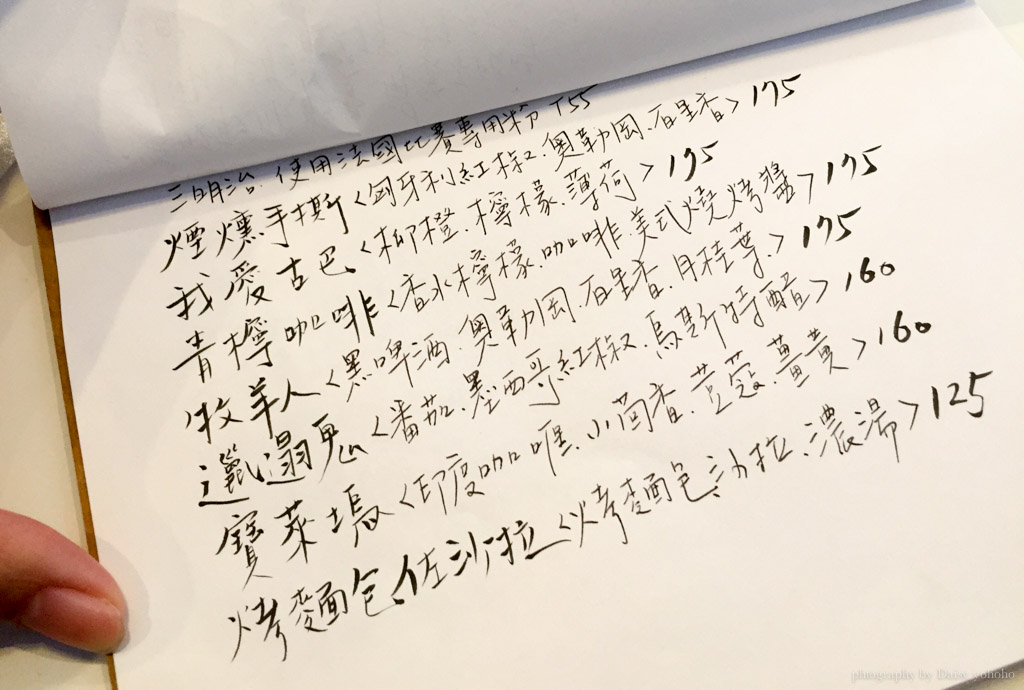 三明治. 使用法國比賽專用粉 T55
煙燻手撕<匈牙利紅椒. 奧勒岡. 百里香> 175
我愛古巴<柳橙. 檸檬. 薄荷> 175
青檸咖啡<香水檸檬. 咖啡. 美式燒烤醬> 175
牧羊人<黑啤酒. 奧勒岡. 百里香. 月桂葉.> 175
邋遢鬼<番茄. 墨西哥紅椒. 烏斯特醋> 160
寶萊塢<印度咖喱. 小茴香. 荳蔻. 薑黃> 160
烤麵包佐沙拉<烤麵包. 沙拉. 濃湯> 125
photography by Daisy yohoho